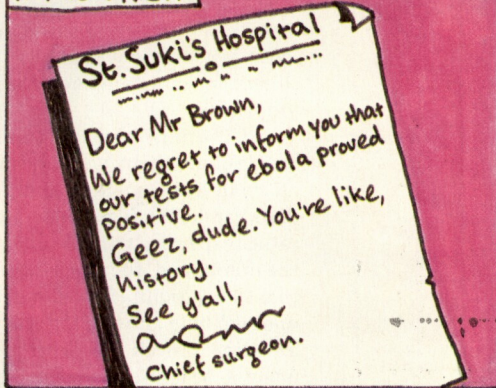 St. Suki's Hospital
Dear Mr Brown,
We regret to inform you that
our tests for ebola proved
positive.
Geez, dude. You're like,
history.
See y'all,
Chief surgeon.